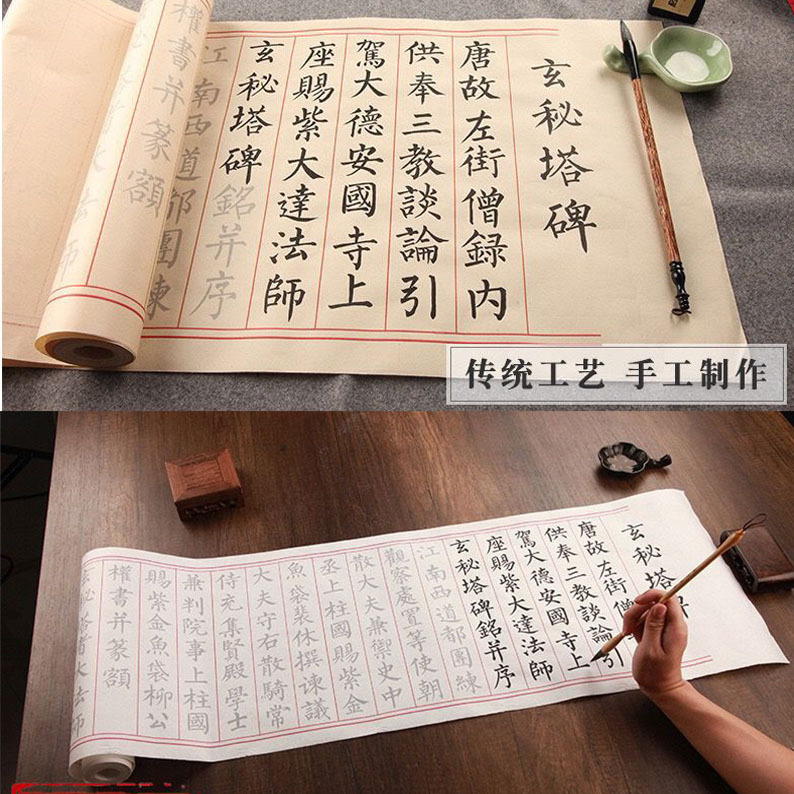 玄秘塔碑
唐故左街僧録内
供奉三教談論引
駕大德安國寺上
座賜紫大達法師
玄秘塔碑銘并序
江南西道都團練
權書并篆額
法師
传统工艺 手工制作
玄秘塔碑
唐故左街僧
供奉三教談論引
駕大德安國寺上
座賜紫大達法師
玄秘塔碑銘并序
江南西道都團練
觀察處置等使朝
散大夫兼禦史中
丞上柱國賜紫金
魚袋裴休撰諫議
大夫守右散騎常
侍充集賢殿學士
兼判院事上柱國
賜紫金魚袋柳公
權書并篆額
玄秘塔者大法師